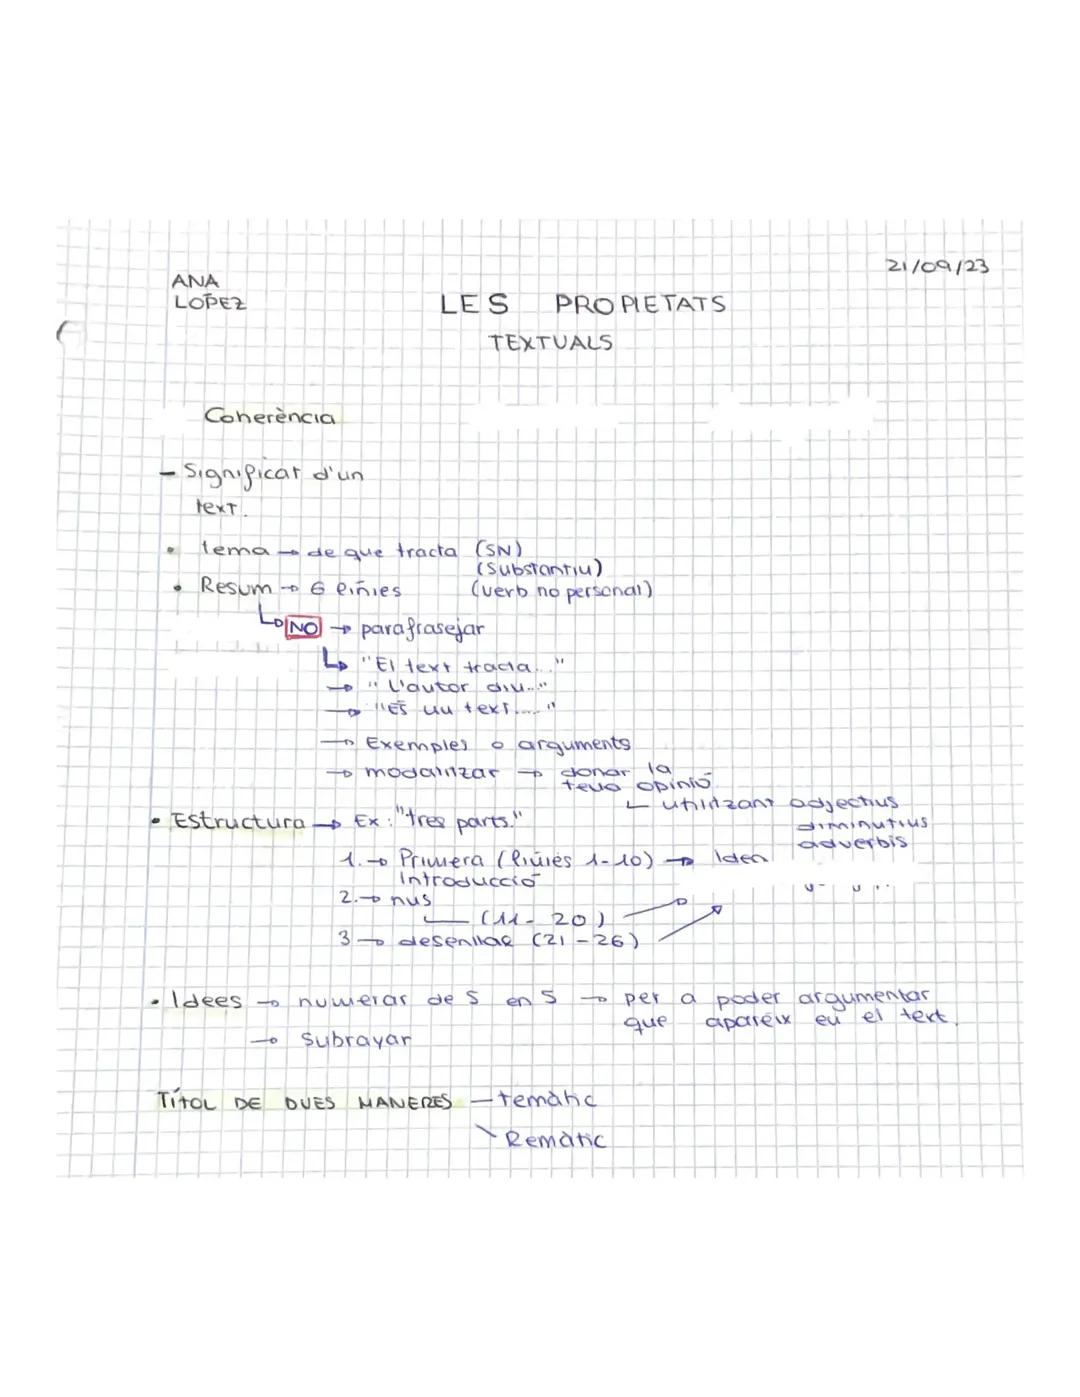 21/09/23
ANA
LOPEZ
LES PROPIETATS
TEXTUALS
Coherència
- Significat d'un
text.
• tema → de que tracta (SN)
(Substantiu)
• Resum → 6 liñies (verb no personal)
↳ NO → parafrasejar
↳ "El text tracta..."
→ "L'autor diu..."
→ "És un text....."
→ Exemples o arguments
→ modalitzar → donar la
teva opinió
∟ utilitzant adjectius
diminutius
adverbis
• Estructura → Ex: "tres parts."
1. → Primera (línies 1-10) → Idea
Introducció
2. → nus
(11-20)
3 → desenllaç (21-26)
• Idees → numerar de 5 en 5 → per a poder argumentar
que apareix en el text.
→ Subrayar
TÍTOL DE DUES MANERES - temàtic
\ Remàtic